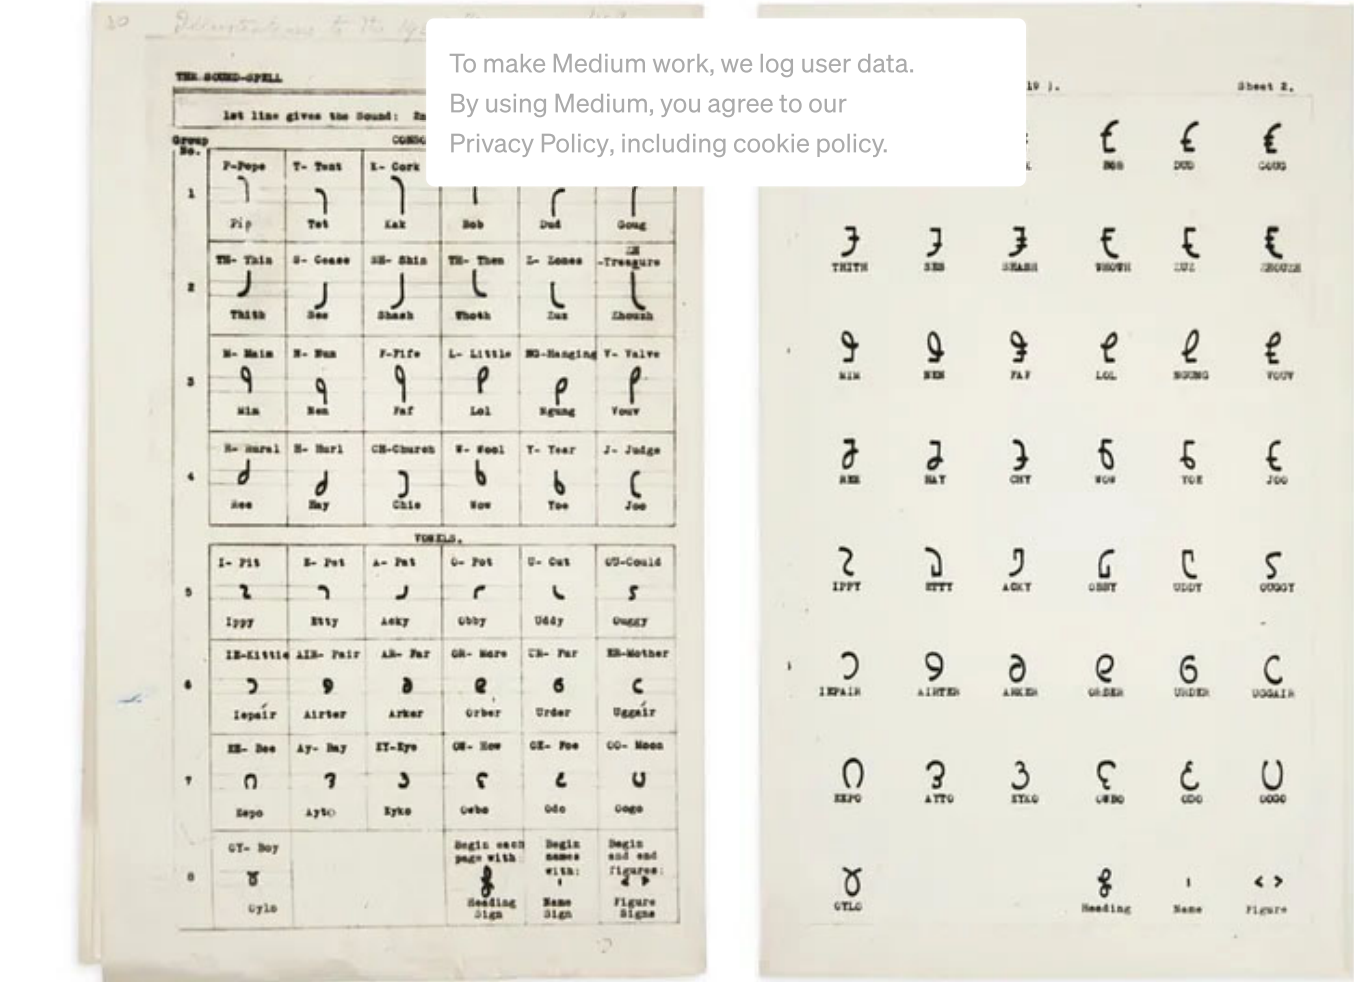 THE SOUND-SPELL
To make Medium work, we log user data.
By using Medium, you agree to our
Privacy Policy, including cookie policy.
1st line gives the Sound:
Group No.
P-Pope T- Tent K- Cork
1
Pip Tet Kak Bob Dud Goug
TH- Thin S- Cease SH- Shin TH- Then Z- Zones ZH -Treasure
2
Thith Ses Shash Thoth Zuz Zhouzh
M- Maim N- Nun F-Fife L- Little NG-Hanging V- Valve
3
Mim Nen Faf Lol Ngung Vouv
R- Rural H- Hurl CH-Church W- Wool Y- Year J- Judge
4
Ree Hay Wow Yoe Joo
VOWELS.
I- Pit E- Pet A- Pat O- Pot U- Cut OU-Could
5
Ippy Etty Acky Obby Uddy Ouggy
IE-Kittie AIR- Pair AR- Far OR- More UR- Fur ER-Mother
6
Iepair Airter Arker Orber Urder Uggair
EE- Bee Ay- Bay EY-Eye OW- How OE- Foe OO- Moon
7
Eepo Ayto Eyko Owbo Odo Oogo
OY- Boy
Begin each page with:
Begin names with:
Begin and end figures:
8
Oylo
Heading Sign
Name Sign
Figure Signs
Sheet 2.
BOB DUD GOUG
THITH SES SHASH THOTH ZUZ ZHOUZH
MIM NEN FAF LOL NGUNG VOUV
REE HAY CHY WOW YOE JOO
IPPY ETTY ACKY OBBY UDDY OUGGY
IEPAIR AIRTER ARKER ORBER URDER UGGAIR
EEPO AYTO EYKO OWBO ODO OOGO
OYLO Heading Name Figure